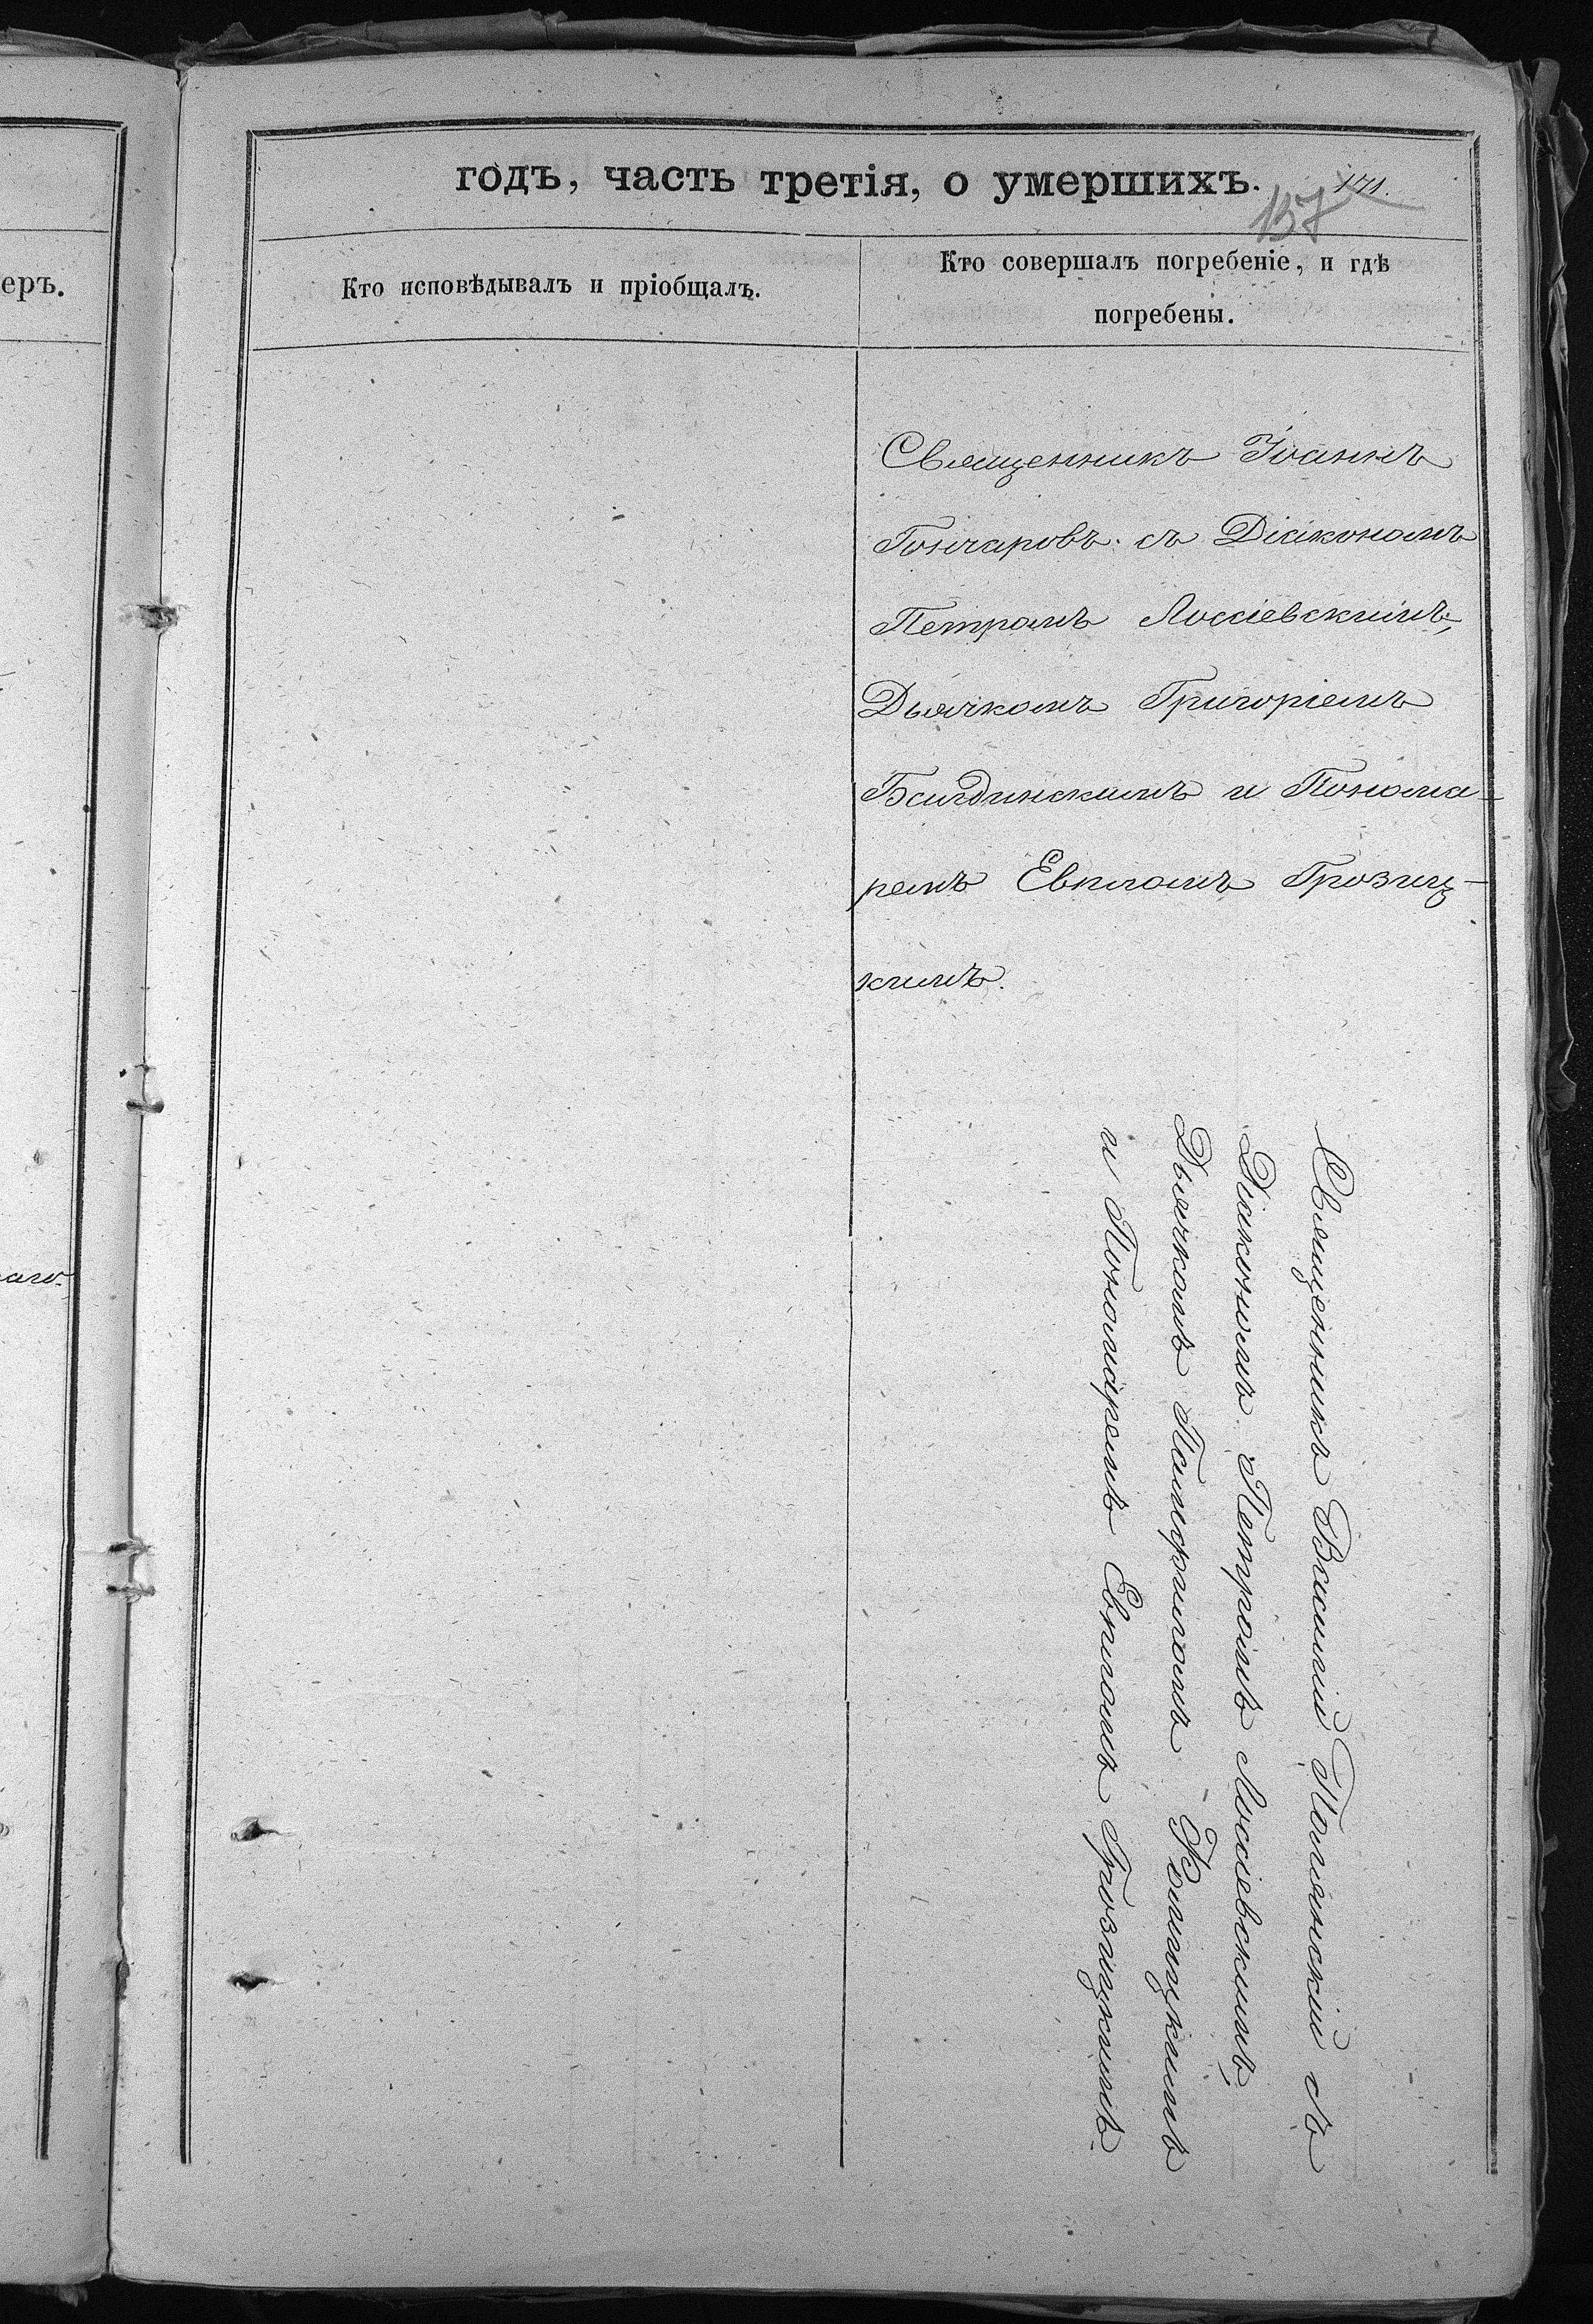 еръ.
годъ, часть третія, о умершихъ.
171.
137
Кто исповѣдывалъ и пріобщалъ.
Кто совершалъ погребеніе, и гдѣ
погребены.
Священникъ Іоаннъ
Гончаровъ съ Діакономъ
Петромъ Лоссіевскимъ,
Дьячкомъ Григоріемъ
и Понома-
ремъ Евпломъ Грозиц-
кимъ.
Священникъ Василій Полянскій съ
Діакономъ Петромъ Лоссіевскимъ,
Дьячкомъ Памфиломъ
и Пономаремъ Евпломъ Грозицкимъ.